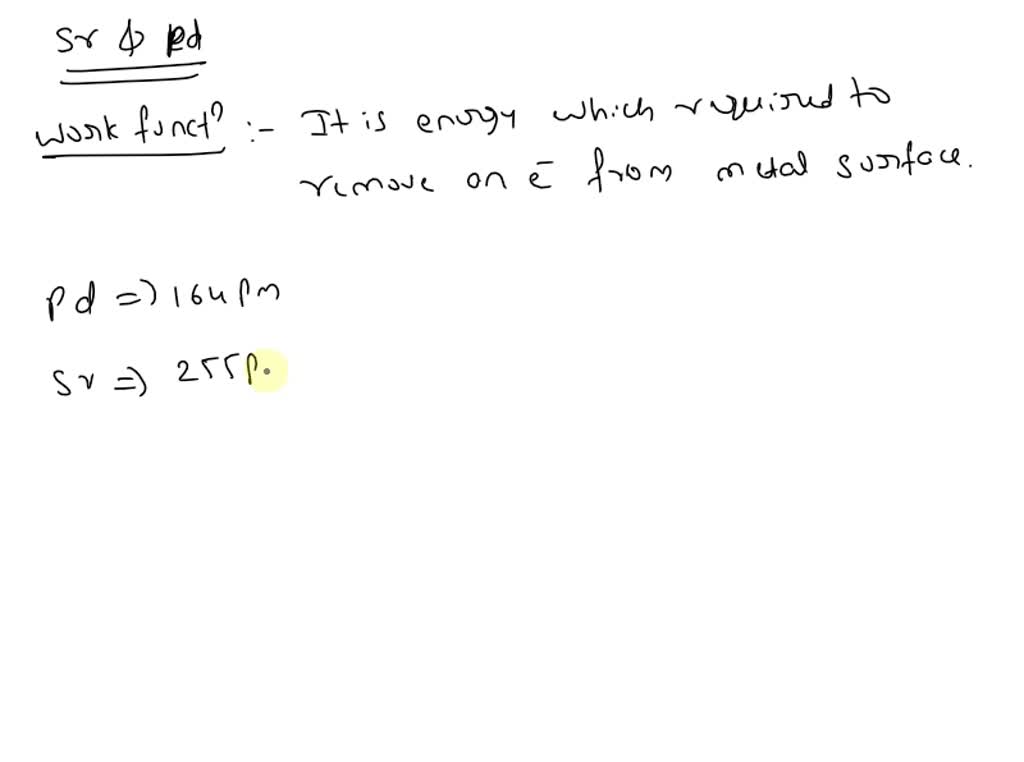 Sr & Pd
Work funct? :- It is energy which required to
remove an e̅ from metal surface.
Pd => 164 pm
Sr => 255 p.